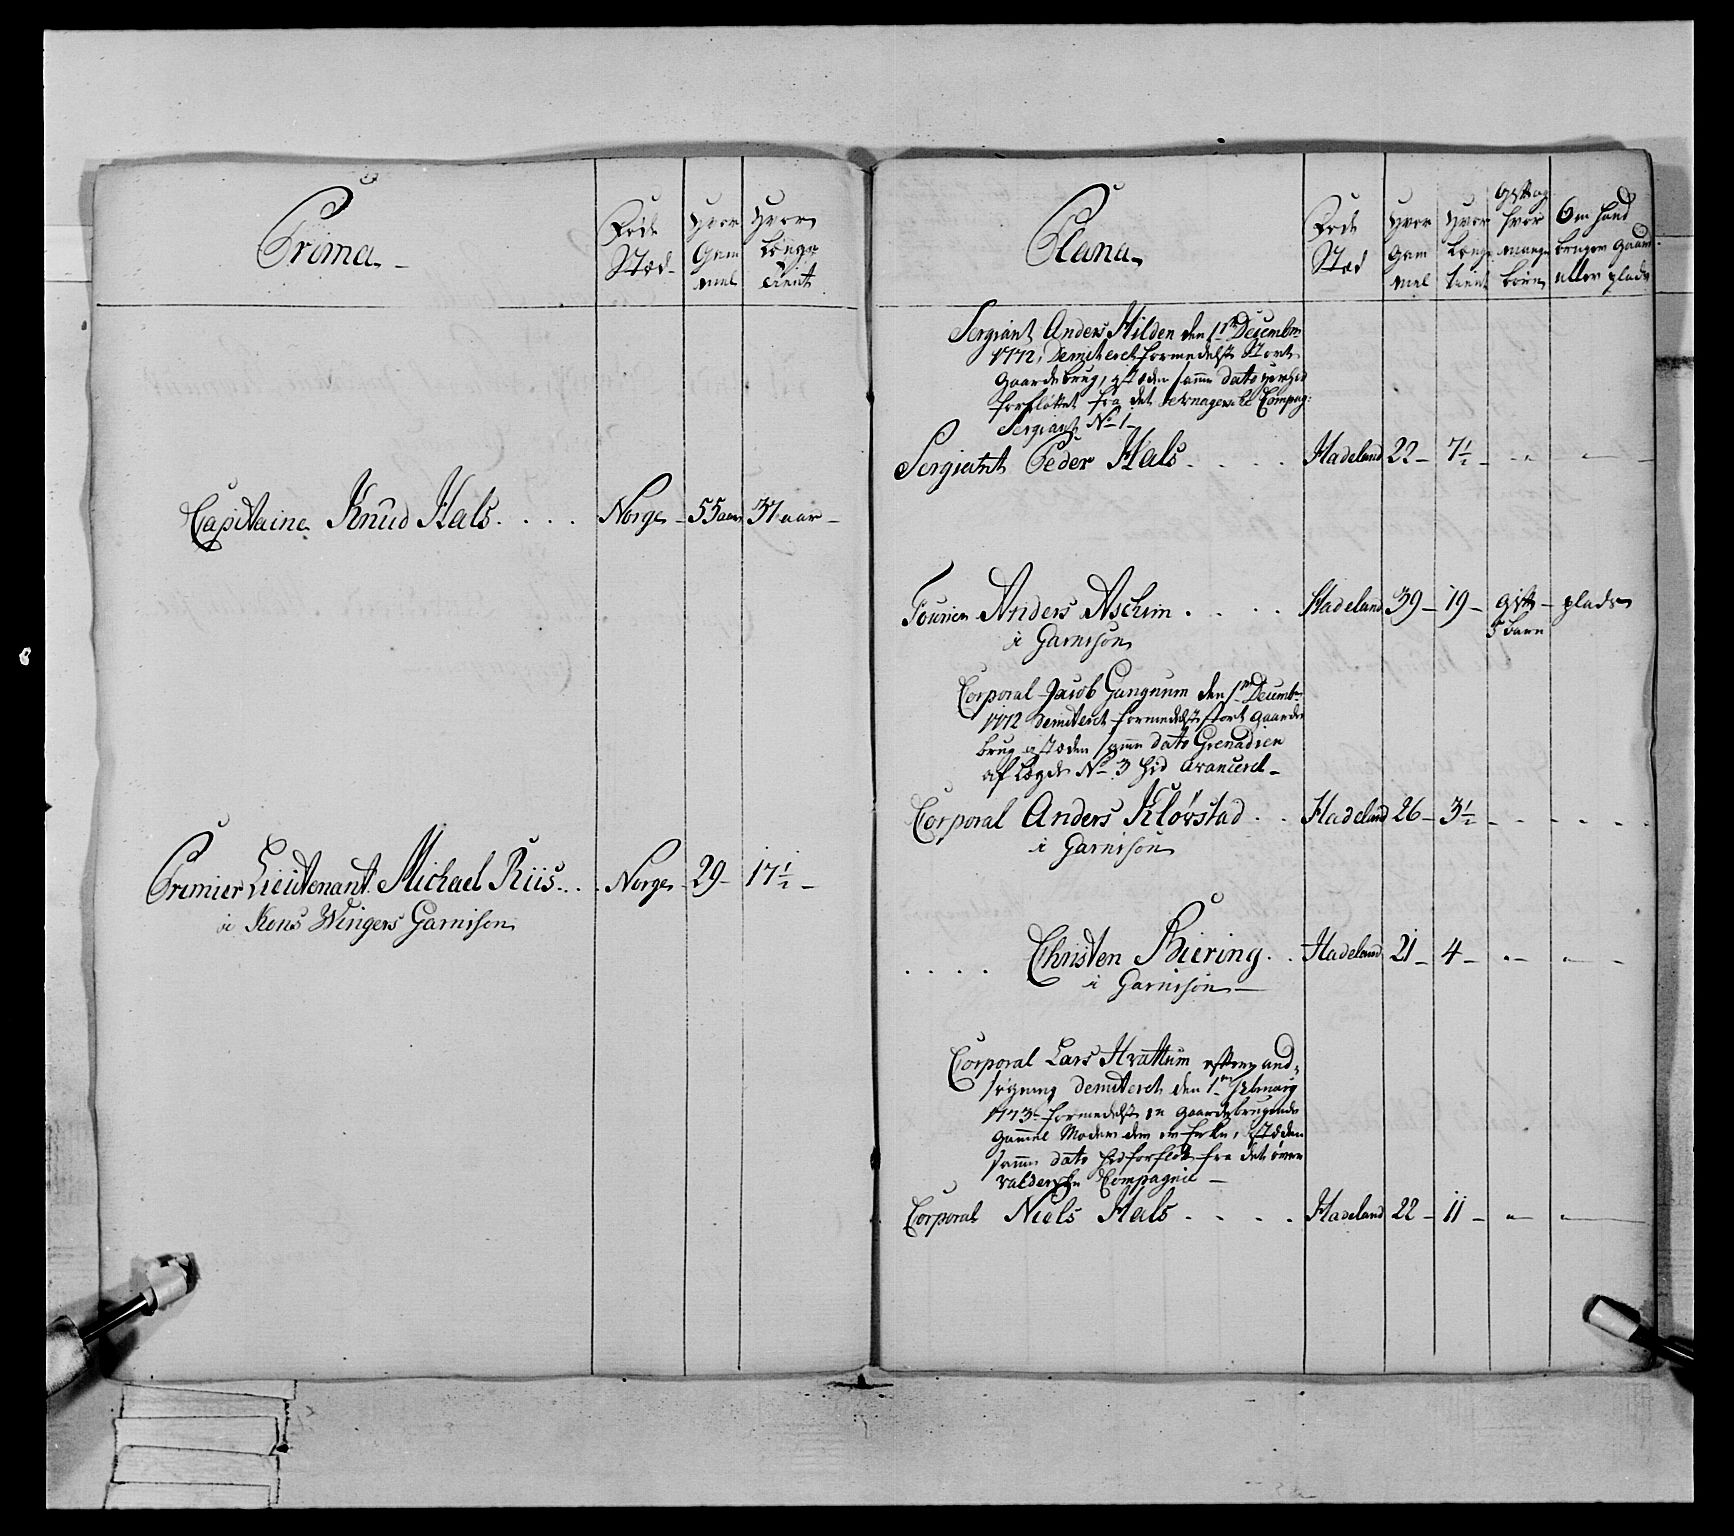 Prima
Føde Stæd
Hvor Gammel
Hvor Længe Tient
Capitaine Knud Hals
Norge
55 aar
37 aar
Premier Lieutenant Michael Riis
i Kons Wingers Garnison
Norge
29
17 1/2
Plana
Føde Stæd
Hvor Gammel
Hvor Længe tient
Gift og hvor mange børn
Om hand bruger gaard eller plads
Sergiant Anders Hilden den 1te Decembr
1772, Demiteret formedelst Stort
Gaardebrug, istæden samme dato
forfløttet fra det Compag:
Sergiant No 1
Sergiant Peder Hals
Hadeland
22
7 1/2
Fourier Anders Aschim
i Garnison
Hadeland
39
19
gift
5 barn
plads
Corporal Jacob Gangnum den 1te Decembr
1772 demiteret formedelst stort Gaarde
brug istæden samme dato Grenadier
af Lægde No 3 hid avanceret
Corporal Anders Kløvstad
i Garnison
Hadeland
26
3 1/2
Christen Biering
i Garnison
Hadeland
21
4
Corporal Lars Hvattum efter and
søgning demiteret den 1te Februarij
1773 formedelst en gaardebrugende
gammel Moder istæden
samme dato hidforfløt fra det øvre
valderske Compagnie
Corporal Niels Hals
Hadeland
22
11